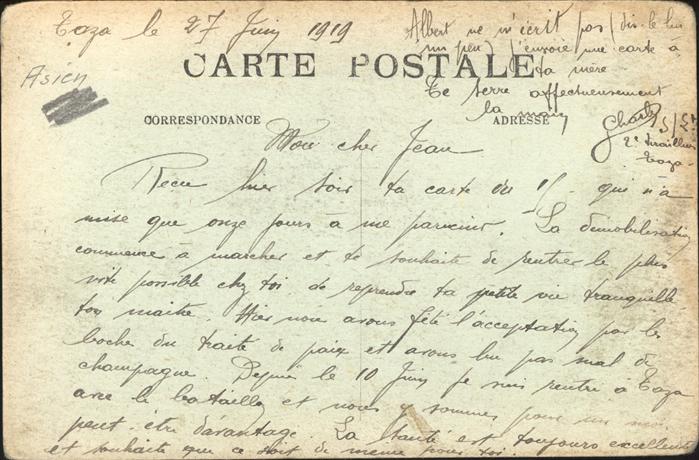 Taza le 27 Juin 1919
Albert ne m'écrit pas (dis-le lui
un peu) j'envoie une carte à
ta mère
Te serre affectueusement
la main
Charles
2e Tirailleurs
Taza
Asien
CARTE POSTALE
CORRESPONDANCE
ADRESSE
Mon cher Jean
Reçu hier soir ta carte du qui n'a
mise que onze jours à me parvenir. La démobilisation
commence à marcher et te souhaite de rentrer le plus
vite possible chez toi de reprendre ta petite vie tranquille
ton maitre. Hier nous avons fêté l'acceptation par le
boche du traité de paix et avons bu pas mal de
champagne. Depuis le 10 Juin je suis rentré à Taza
avec le bataillon et nous y sommes pour un mois
peut-être davantage. La santé est toujours excellente
et souhaite que ce soit de même pour toi.